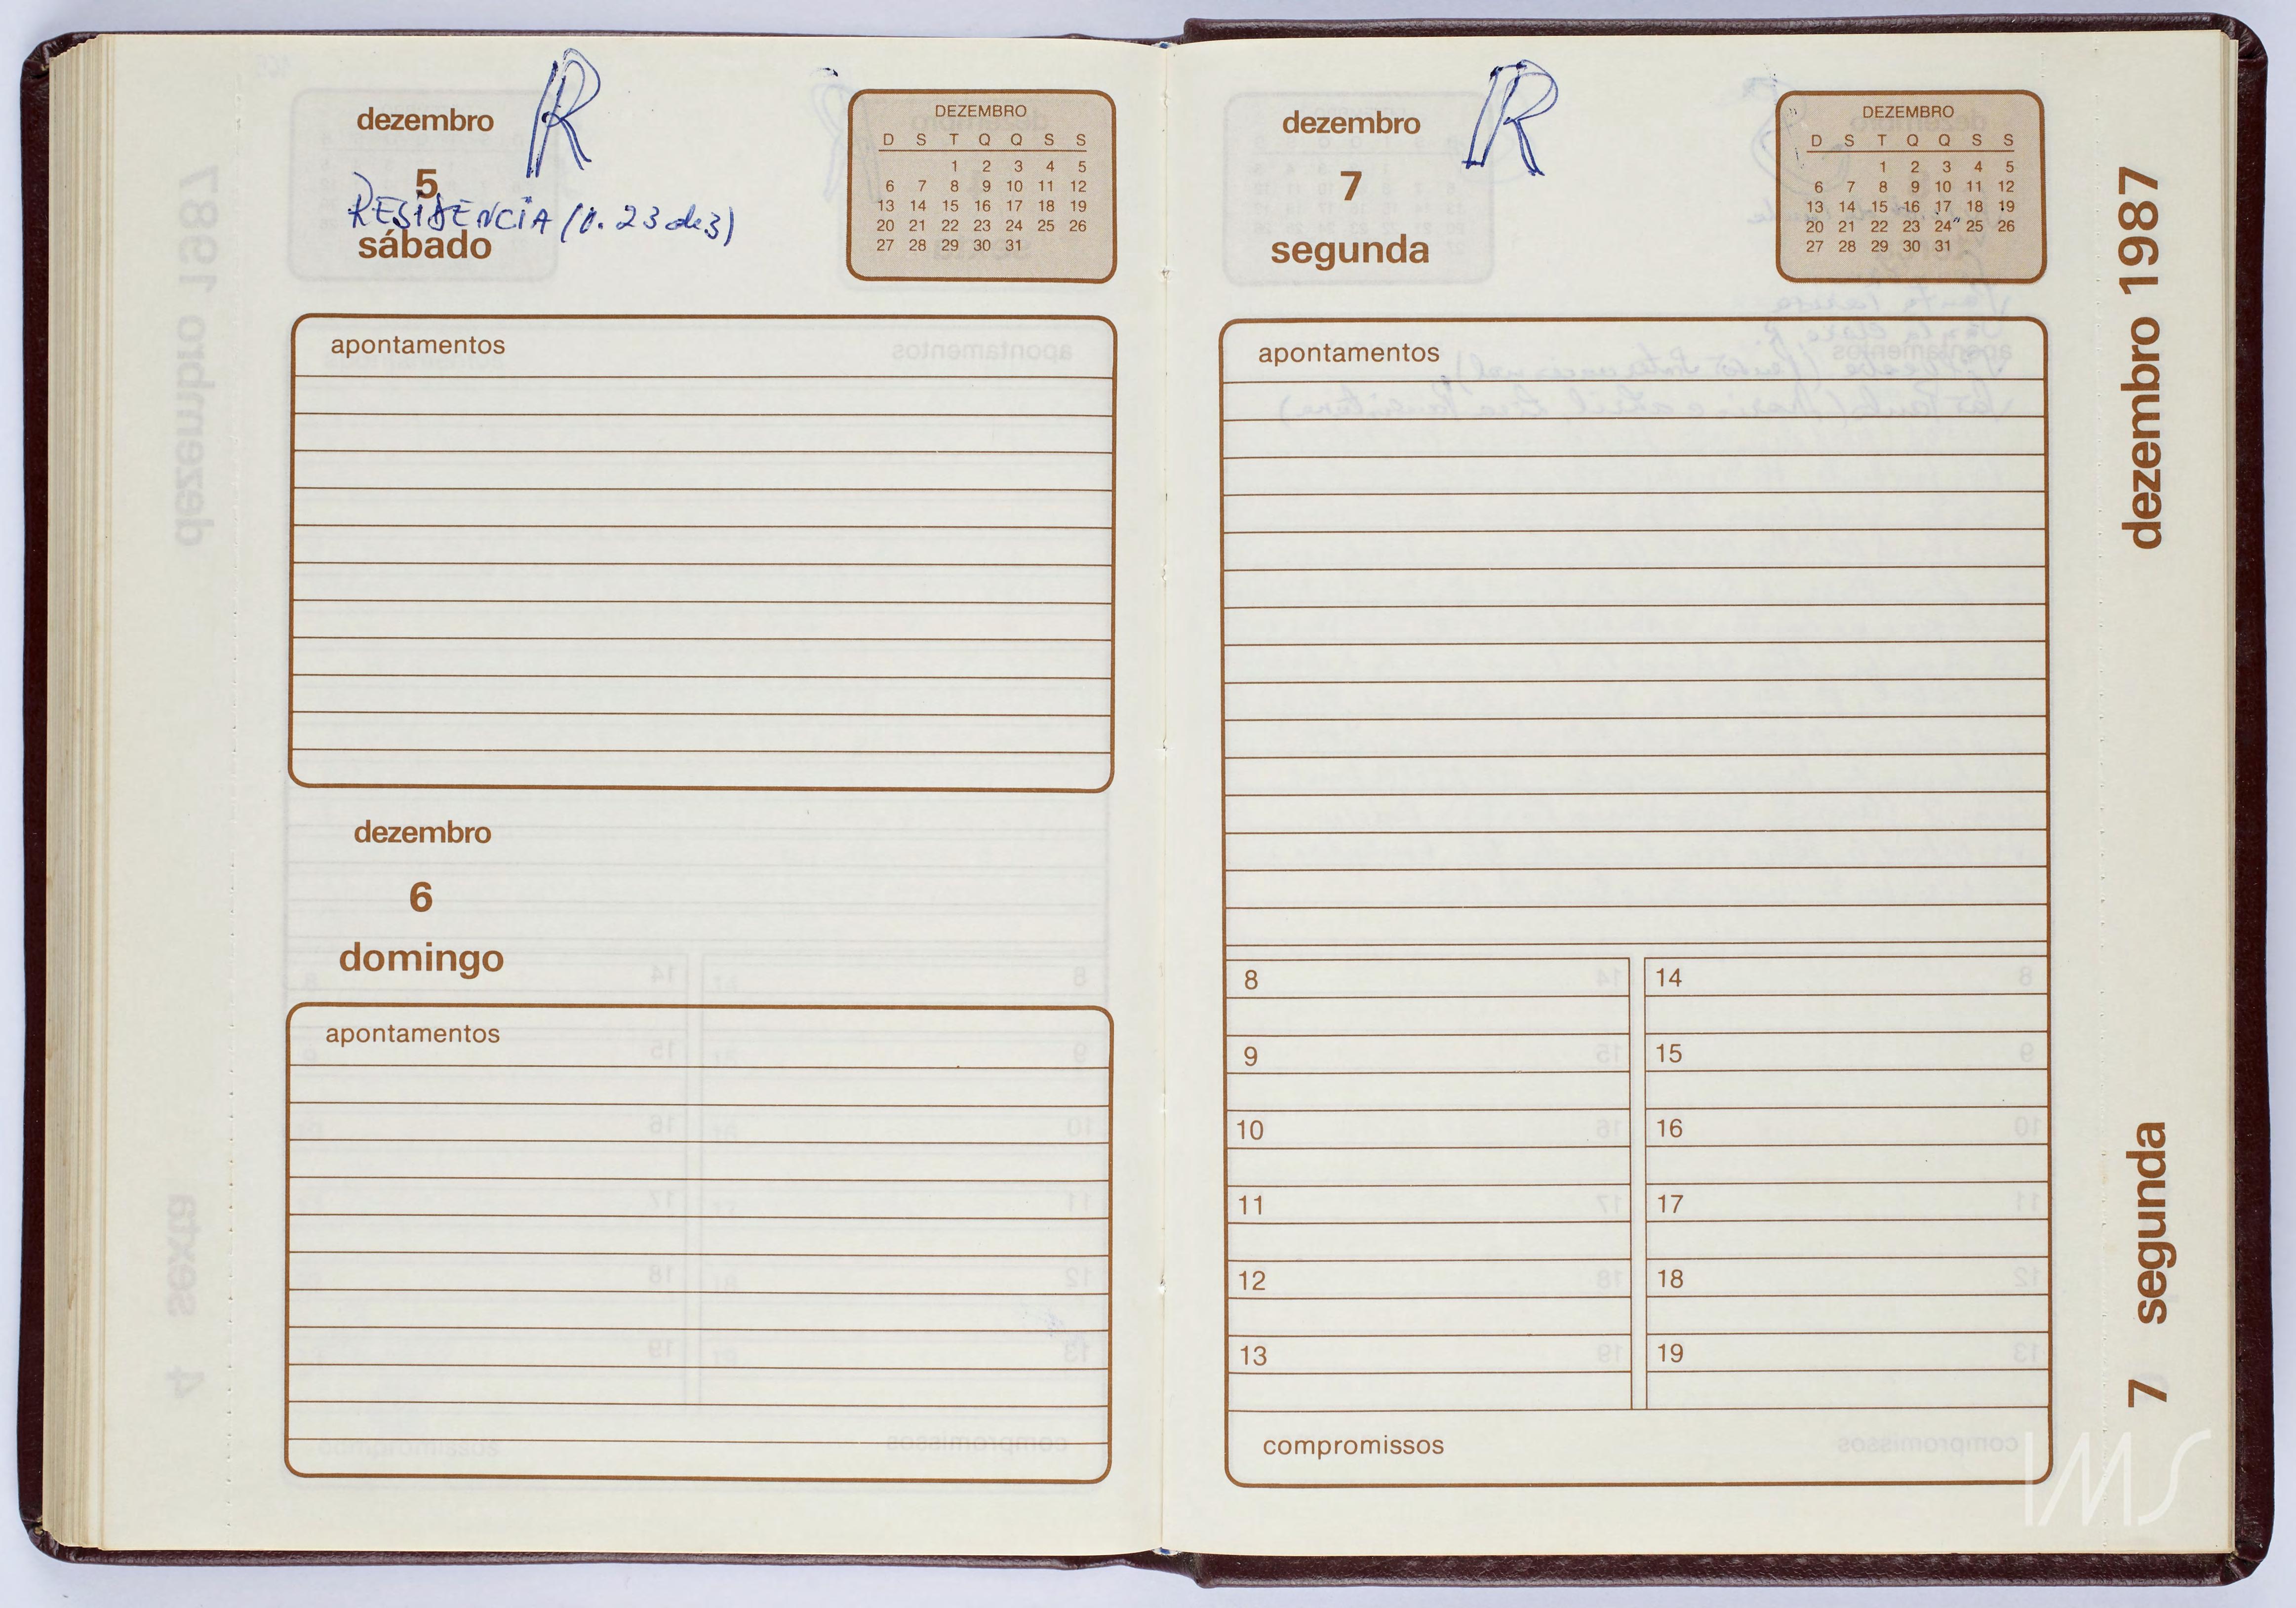 dezembro R
5
RESIDENCIA (v. 23 de 3)
sábado
DEZEMBRO
D S T Q Q S S
1 2 3 4 5
6 7 8 9 10 11 12
13 14 15 16 17 18 19
20 21 22 23 24 25 26
27 28 29 30 31
apontamentos
dezembro
6
domingo
apontamentos
dezembro R
7
segunda
DEZEMBRO
D S T Q Q S S
1 2 3 4 5
6 7 8 9 10 11 12
13 14 15 16 17 18 19
20 21 22 23 24 25 26
27 28 29 30 31
apontamentos
8 14
9 15
10 16
11 17
12 18
13 19
compromissos
dezembro 1987
7 segunda
IMS